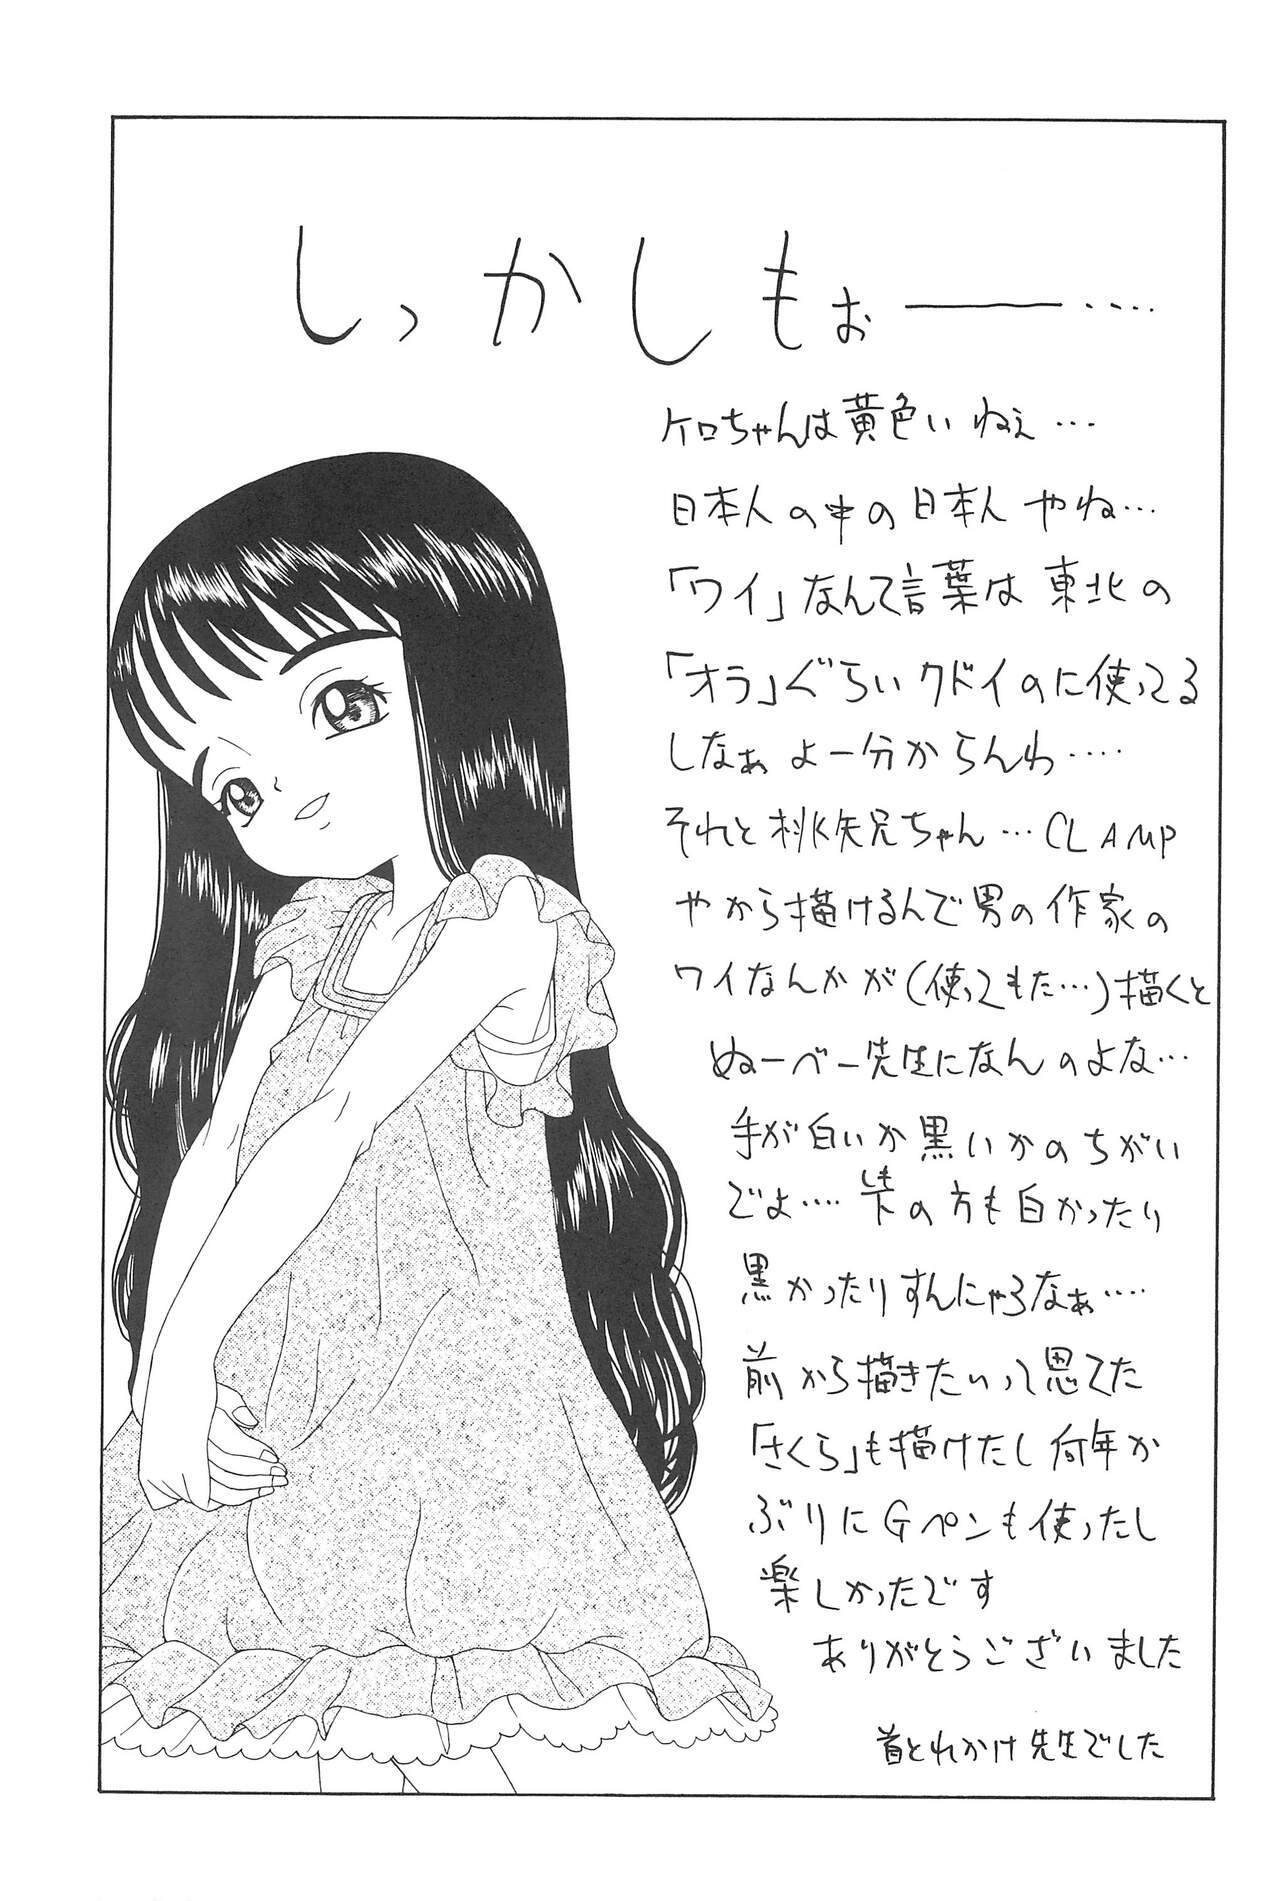 しっかしもぉ――‥‥
ケロちゃんは黄色いねぇ…
日本人の中の日本人やね…
「ワイ」なんて言葉は東北の
「オラ」ぐらいクドイのに使ってる
しなぁよー分からんわ‥‥
それと桃矢兄ちゃん…CLAMP
やから描けるんで男の作家の
ワイなんかが(使ってもた…)描くと
ぬーべー先生になんのよな…
手が白いか黒いかのちがい
でよ‥‥の方も白かったり
黒かったりすんにゃろなぁ‥‥
前から描きたいって思てた
「さくら」も描けたし何年か
ぶりにGペンも使ったし
楽しかったです
ありがとうございました
首とれかけ先生でした